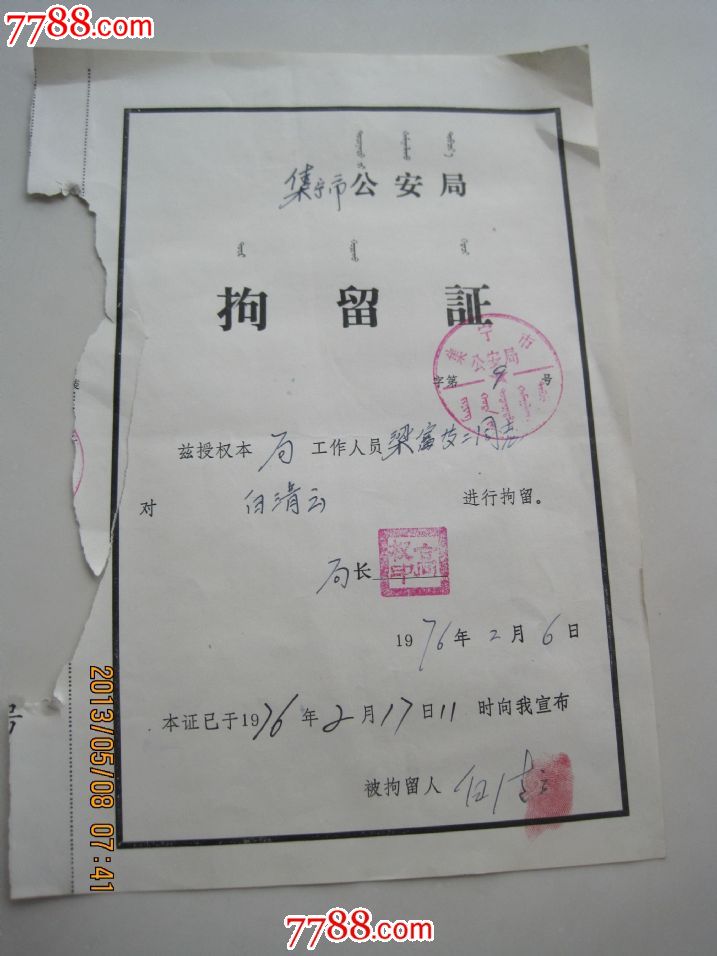 7788.com
7788.com
集宁市公安局
拘留証
集宁市
公安局
字第9号
兹授权本局工作人员梁富
对白清云进行拘留。
局长
权印
1976年2月6日
本证已于1976年2月17日11时向我宣布
被拘留人
号
2013/05/08 07:41
7788.com
7788.com